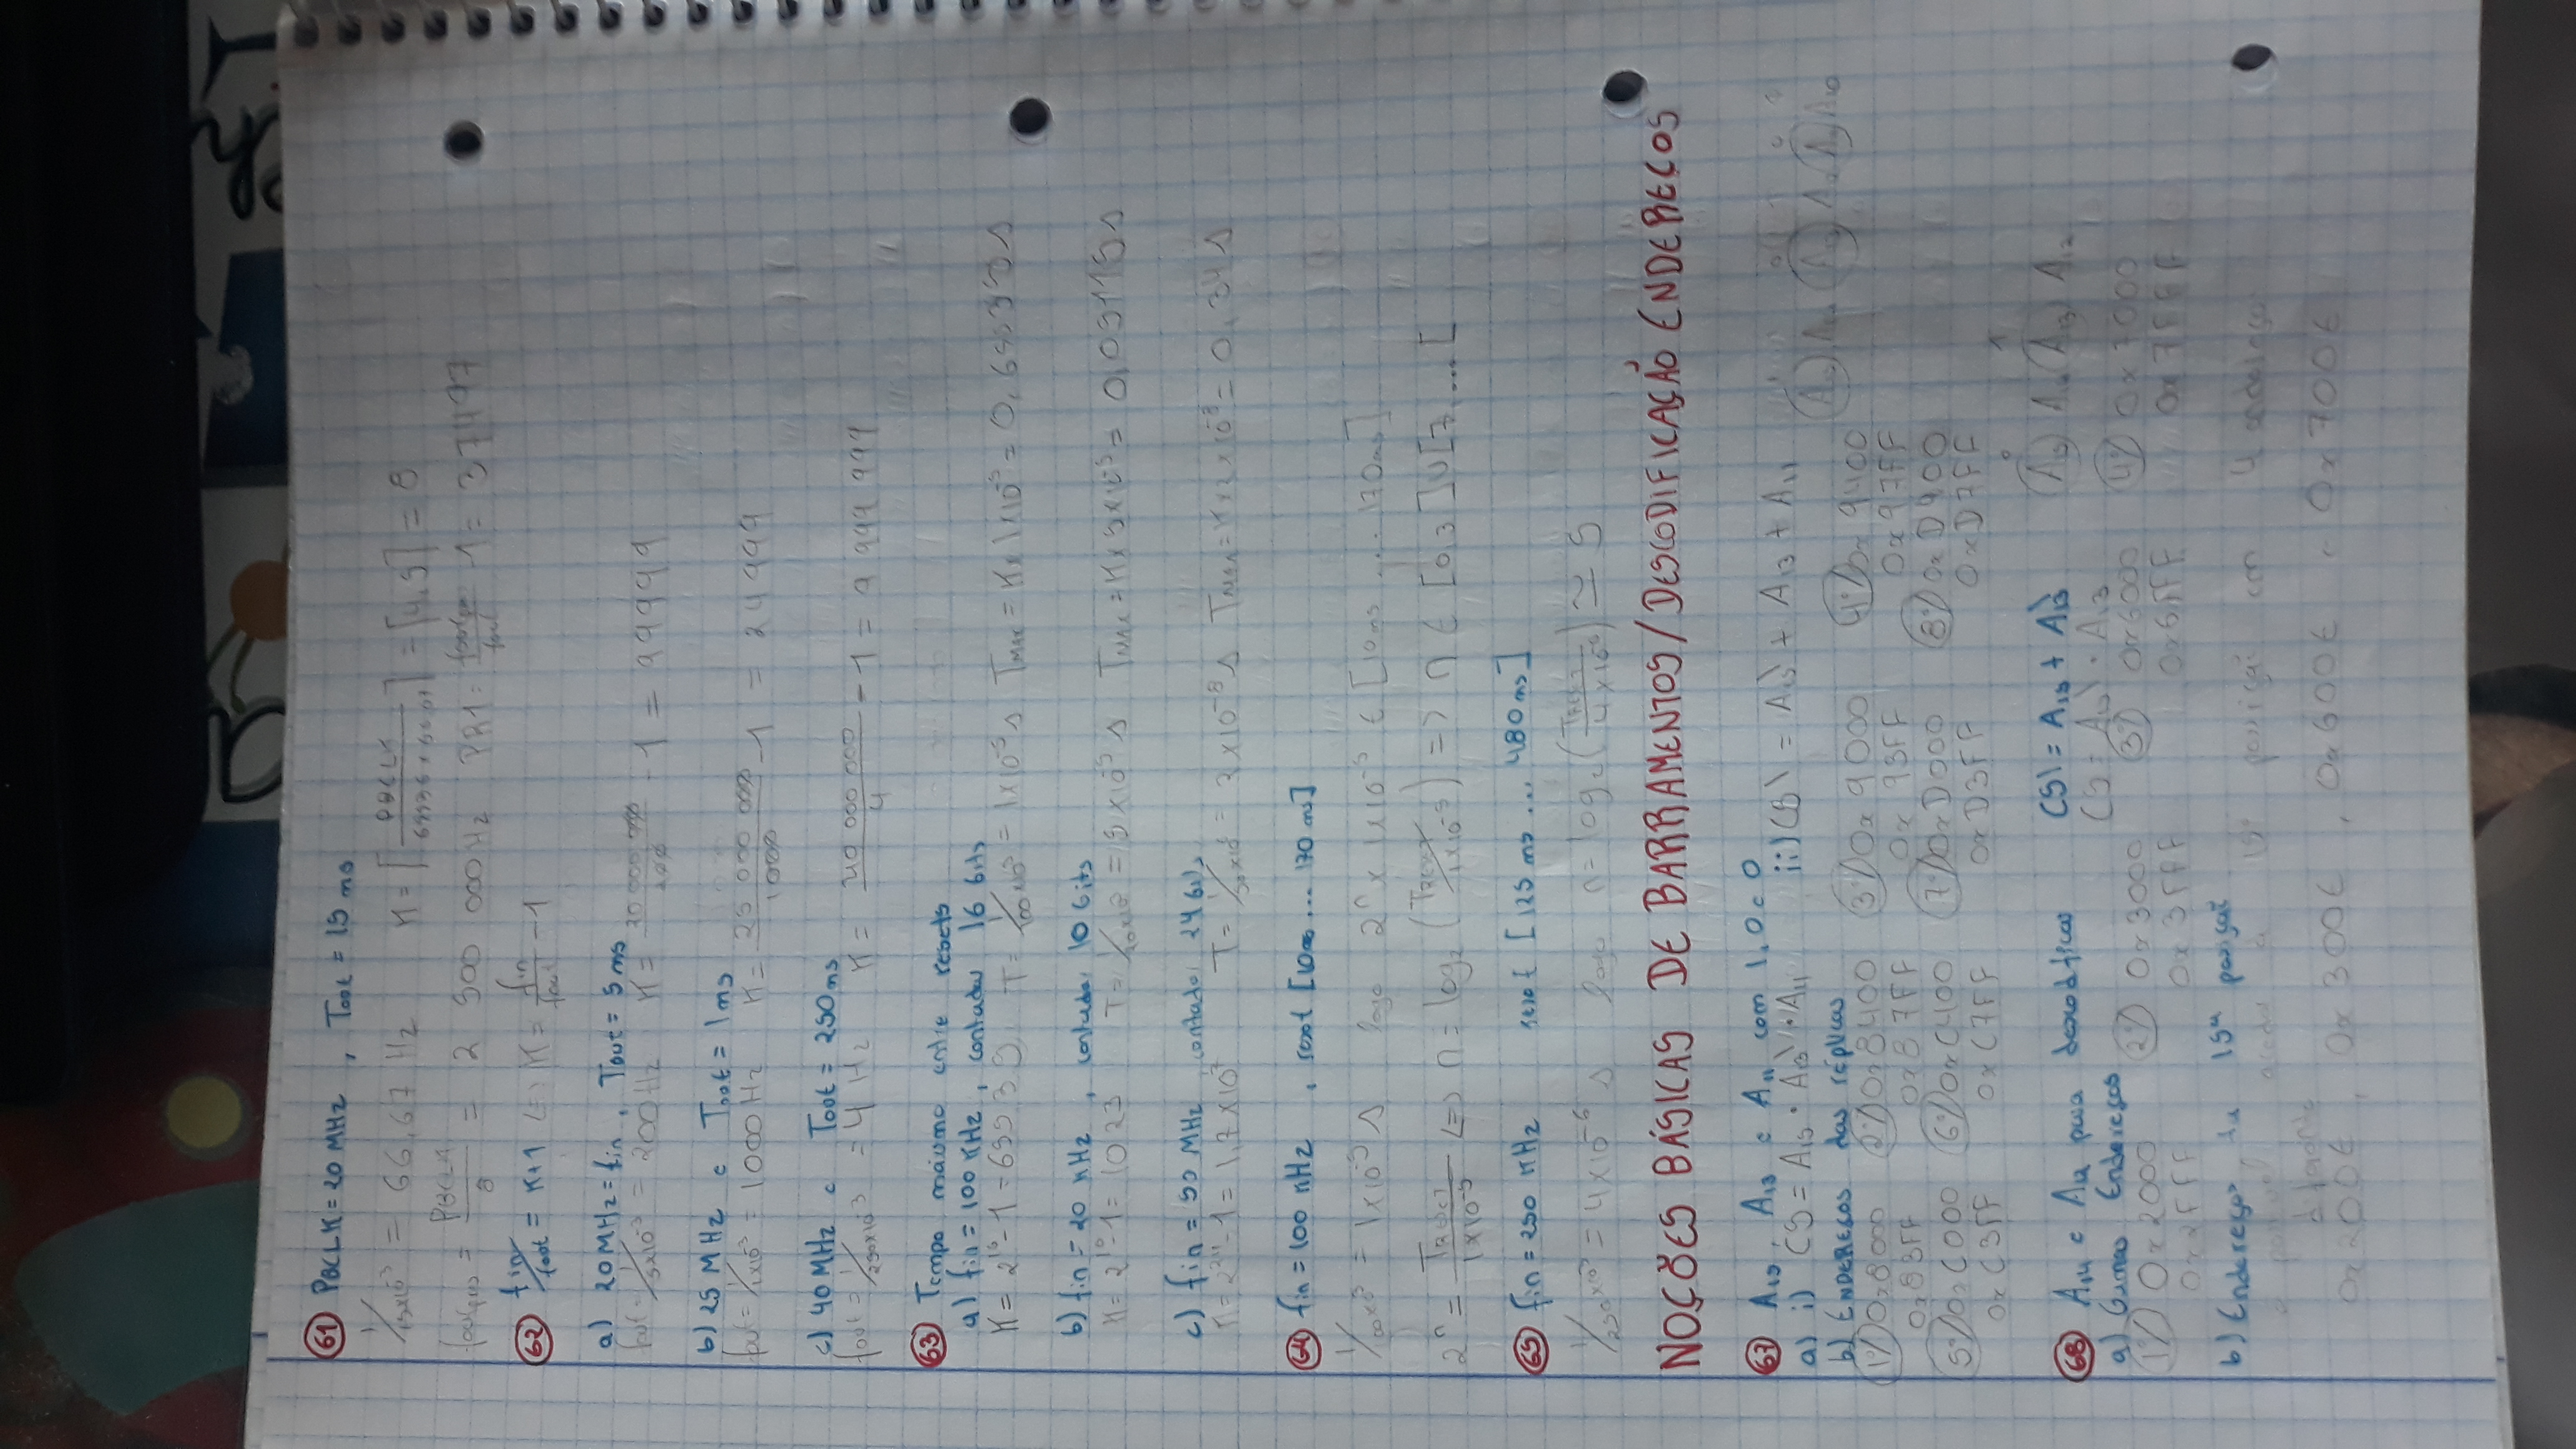 61 PBCLK = 20 MHz , Tout = 15 ms
1/15x10^-3 = 66,67 Hz K = ⌈PBCLK / 65536 x 66,67⌉ = ⌈4,5⌉ = 8
foutpres = PBCLK / 8 = 2 500 000 Hz PR1 = foutpres / fout - 1 = 37497
62 fin/fout = K+1 <=> K = fin/fout - 1
a) 20 MHz = fin, Tout = 5 ms
fout = 1/5x10^-3 = 200 Hz K = 20 000 000 / 200 - 1 = 99999
b) 25 MHz e Tout = 1 ms
fout = 1/1x10^-3 = 1000 Hz K = 25 000 000 / 1000 - 1 = 24999
c) 40 MHz e Tout = 250 ms
fout = 1/250x10^-3 = 4 Hz K = 40 000 000 / 4 - 1 = 9 999 999
63 Tempo máximo entre resets
a) fin = 100 KHz, contador 16 bits
K = 2^16 - 1 = 65535 T = 1/100x10^3 = 1x10^-5 s Tmax = K x 1x10^-5 = 0,65535 s
b) fin = 20 KHz, contador 10 bits
K = 2^10 - 1 = 1023 T = 1/20x10^3 = 5x10^-5 s Tmax = K x 5x10^-5 = 0,05115 s
c) fin = 50 MHz, contador 24 bits
K = 2^24 - 1 = 1,7x10^7 T = 1/50x10^6 = 2x10^-8 s Tmax = K x 2x10^-8 = 0,34 s
64 fin = 100 KHz , reset [10ms ... 170 ms]
1/100x10^3 = 1x10^-5 s logo 2^n x 1x10^-5 ∈ [10ms ... 170ms]
2^n = TRESET / 1x10^-5 <=> n = log2 (TRESET / 1x10^-5) => n ∈ [0,3] U [7, ... [
65 fin = 250 KHz reset [125 ms ... 480 ms]
1/250x10^3 = 4x10^-6 s logo n = log2 (TRESET / 4x10^-6) ≃ 5
NOÇÕES BÁSICAS DE BARRAMENTOS/DESCODIFICAÇÃO ENDEREÇOS
67 A15, A13 e A11 com 1, 0 e 0
a) i) CS = A15 · A13\ · A11 ii) CS\ = A15\ + A13 + A11
b) ENDEREÇOS das réplicas
1º) 0x8000 2º) 0x8400 3º) 0x9000 4º) 0x9400
0x83FF 0x87FF 0x93FF 0x97FF
5º) 0xC000 6º) 0xC400 7º) 0xD000 8º) 0xD400
0xC3FF 0xC7FF 0xD3FF 0xD7FF
68 A14 e A12 para descodificar CS\ = A15 + A13\ A15 A14 A13 A12
CS = A15\ · A13
a) Gamas Endereços
1º) 0x2000 2º) 0x3000 3º) 0x6000 4º) 0x7000
0x2FFF 0x3FFF 0x6FFF 0x7FFF
b) Endereços da 15ª posição
é possível aceder à 15ª posição com 4 endereços
diferentes
0x200E, 0x300E, 0x600E e 0x700E